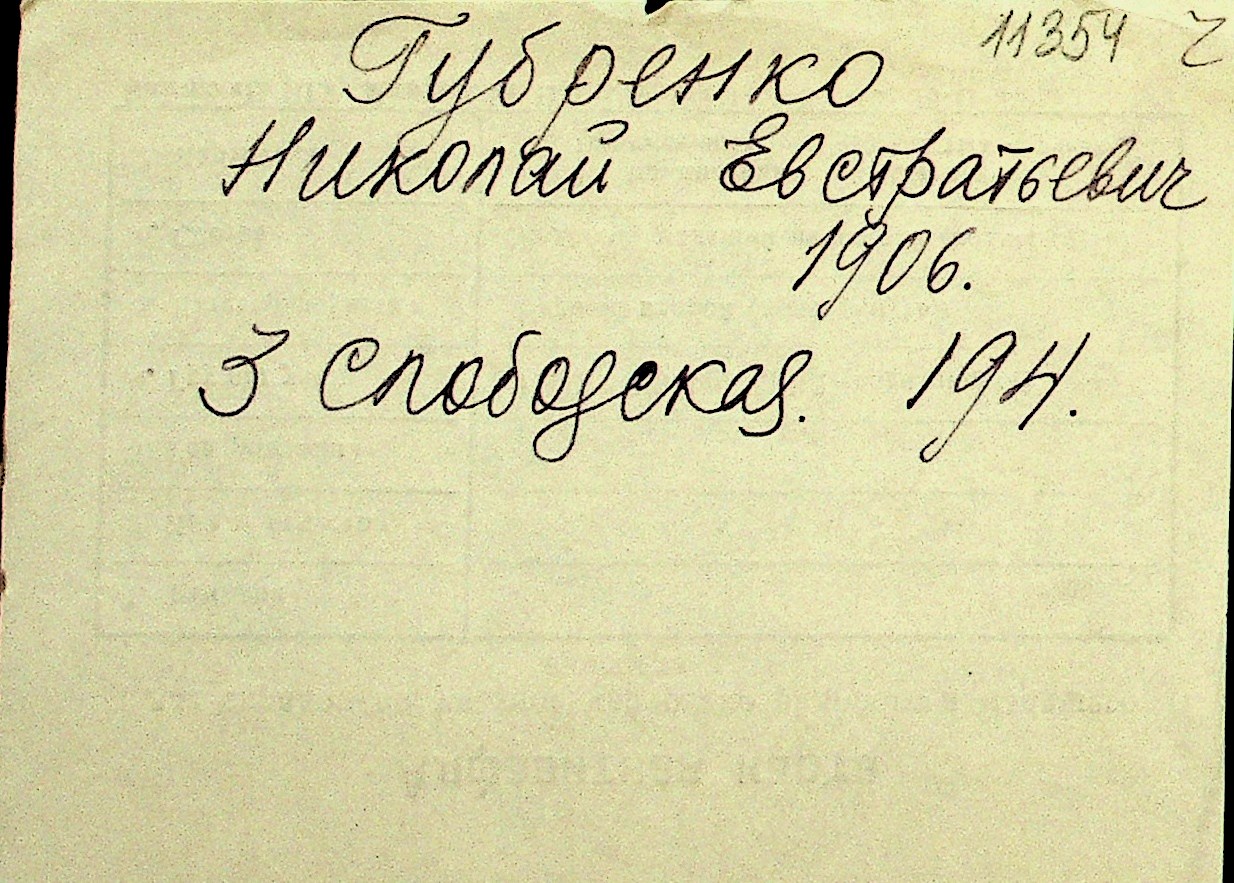 11354 г
Губренко
Николай Евстратьевич
1906.
3 Слободская. 194.